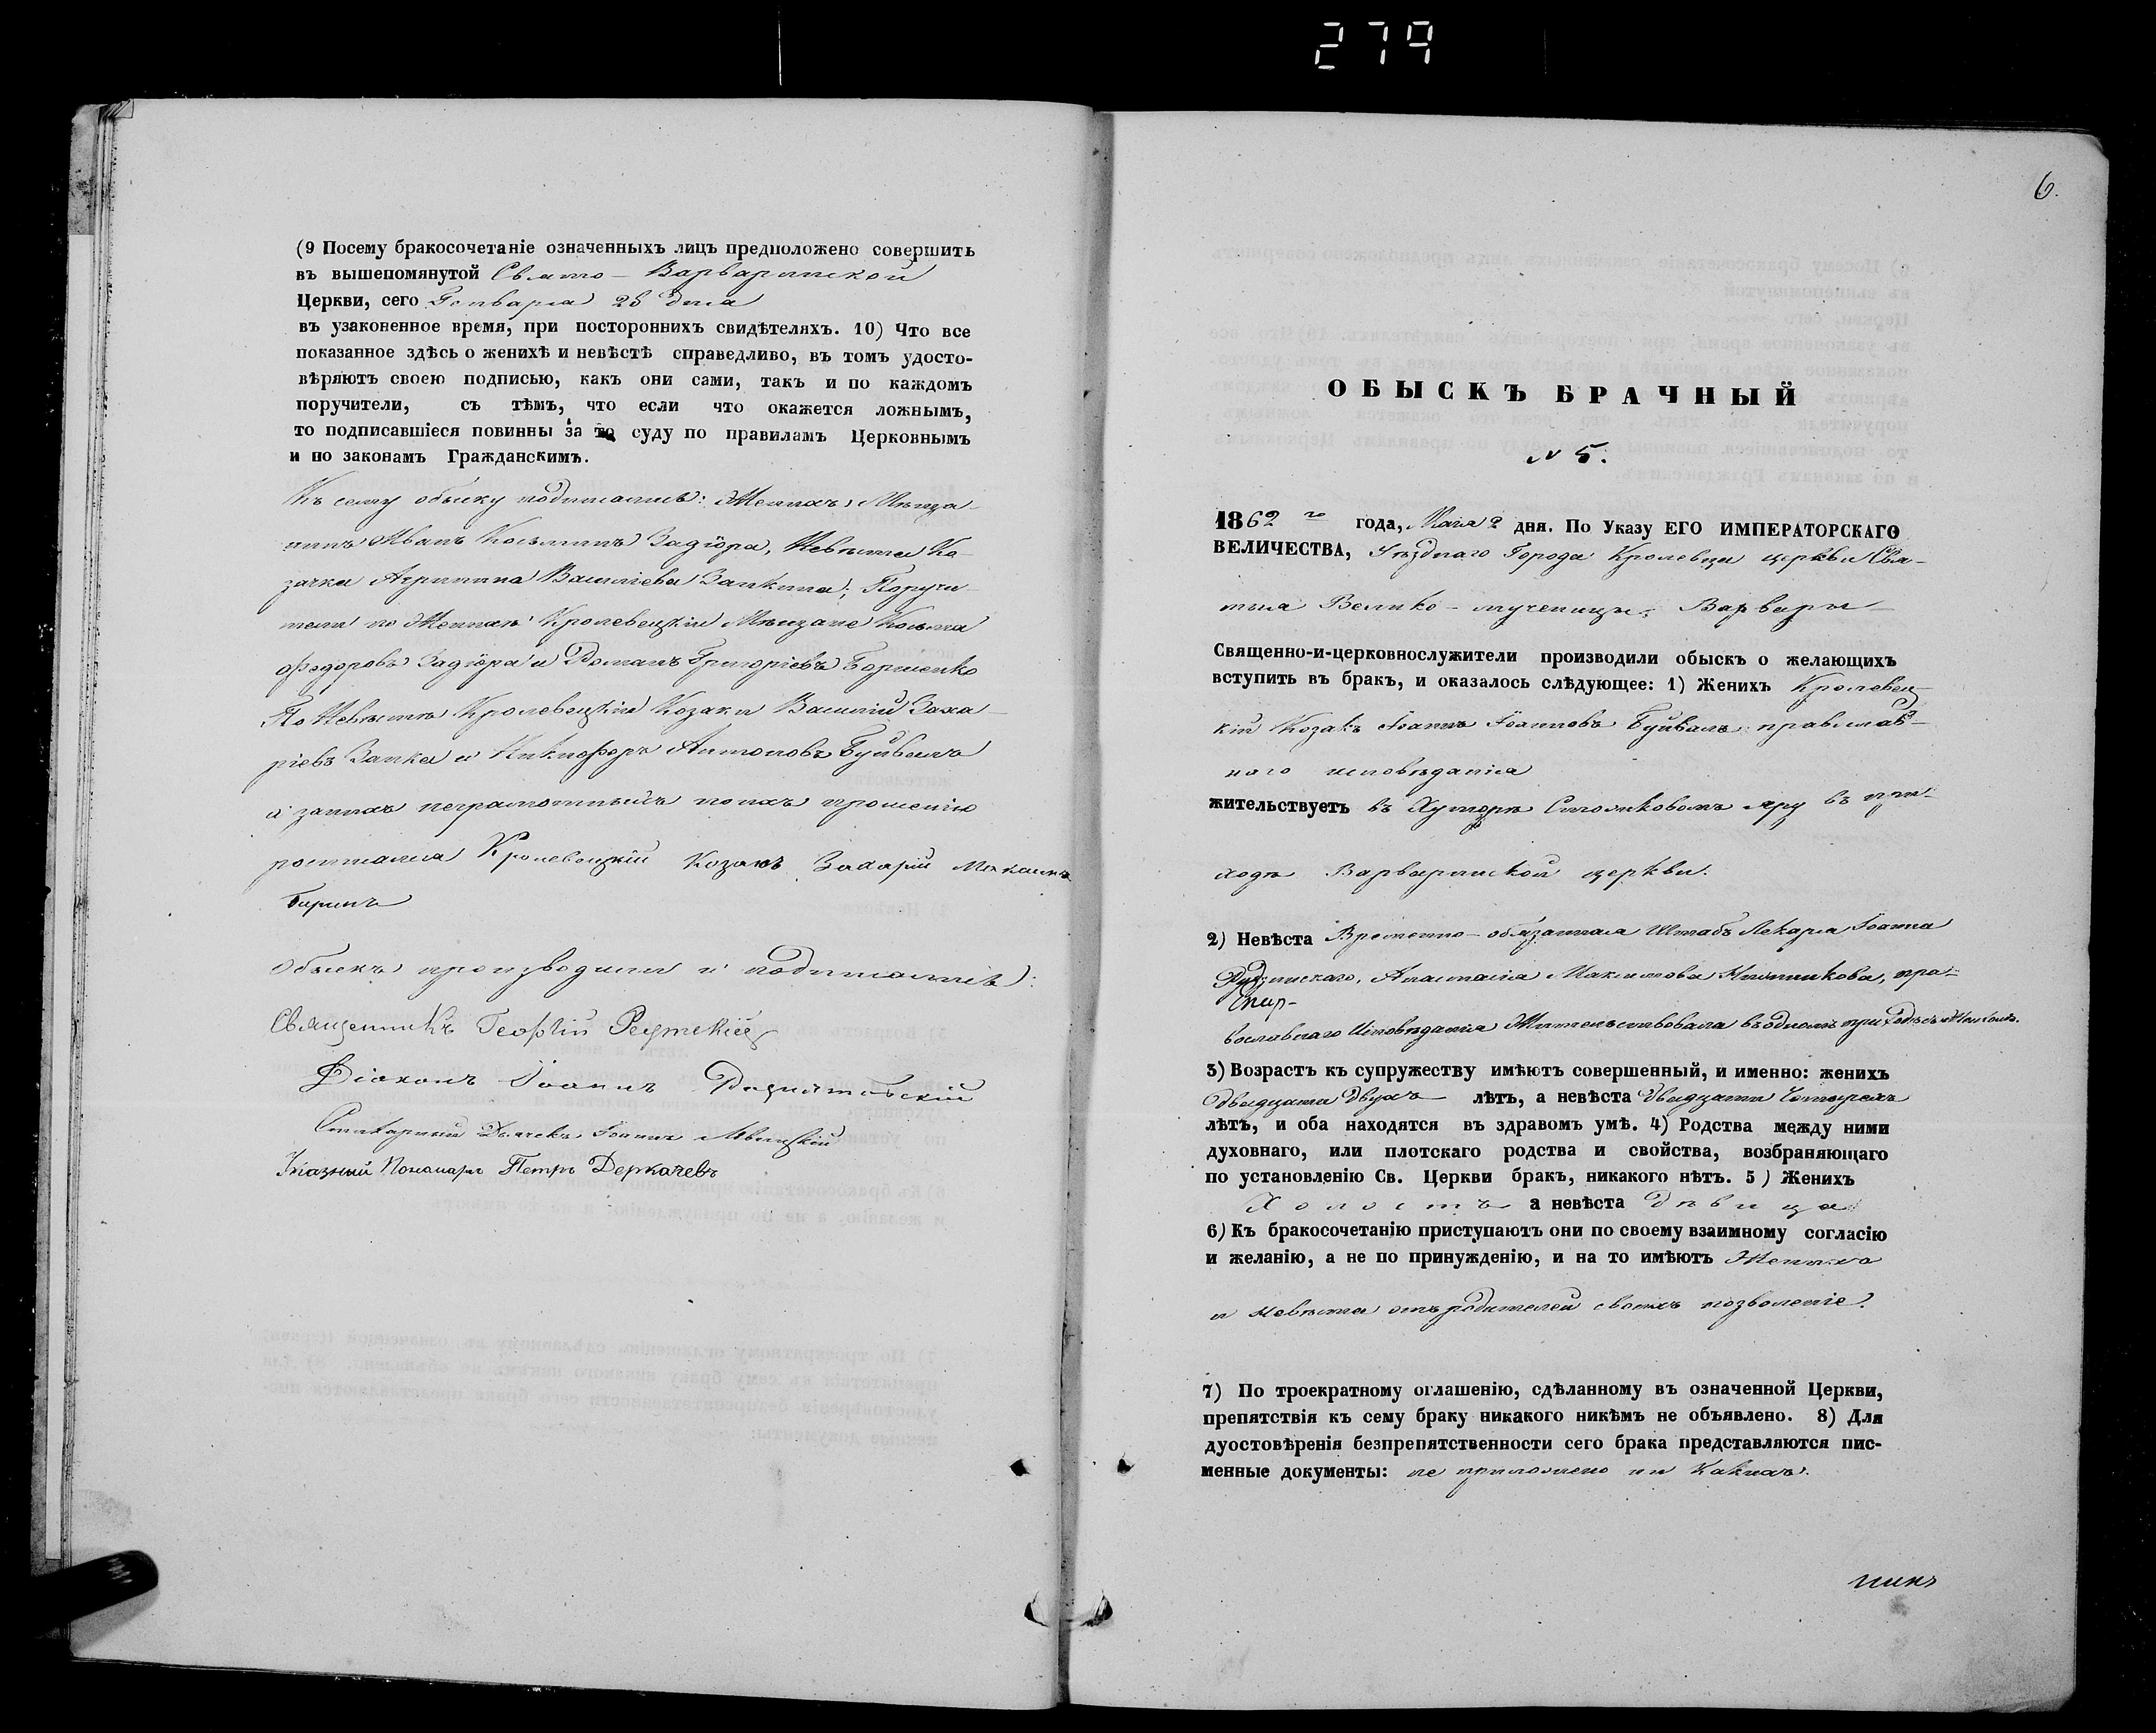 279
(9 Посему бракосочетаніе означенныхъ лицъ предположено совершить
въ вышепомянутой Свято - Варваринской
Церкви, сего Генваря 28 дня
въ узаконенное время, при постороннихъ свидѣтеляхъ. 10) Что все
показанное здѣсь о женихѣ и невѣстѣ справедливо, въ томъ удосто-
вѣряютъ своею подписью, какъ они сами, такъ и по каждомъ
поручители, съ тѣмъ, что если что окажется ложнымъ,
то подписавшіеся повинны за то суду по правиламъ Церковнымъ
и по законамъ Гражданскимъ.
Къ сему обыску подписались: Женихъ, Мѣща-
нинъ Иванъ Косьминъ Задіора, Невѣста Ко-
зачка Агрипина Васильева Запкина; Поручи-
тели по Женихѣ Кролевецкіи Мѣщане Косьма
Федоровъ Задіора и Романъ Григоріевъ
По Невѣстѣ Кролевецкіе Козаки Василій Заха-
ріевъ Запка и Никифоръ Антоновъ Буйвалъ
а за нихъ неграмотныхъ по ихъ прошенію
росписался Кролевецкій Козакъ Захарій
Обыскъ производили и подписались:
Священникъ Георгій Реутскій
Діаконъ Іоаннъ
Дьячекъ Іоаннъ
Указный Пономарь Петръ Деркачевъ
6.
ОБЫСКЪ БРАЧНЫЙ
№ 5.
1862 го года, Мая 2 дня. По Указу ЕГО ИМПЕРАТОРСКАГО
ВЕЛИЧЕСТВА, Уѣзднаго Города Кролевца церкви Свя-
тыя Велико - мученицы Варвары
Священно-и-церковнослужители производили обыскъ о желающихъ
вступить въ бракъ, и оказалось слѣдующее: 1) Женихъ Кролевец-
кій Козакъ Іоаннъ Іоанновъ Буйвалъ православ-
наго исповѣданія
жительствуетъ въ Хуторѣ Стошковомъ яру въ при-
ходѣ Варваринской церкви.
2) Невѣста Временно - обязанная Штабъ Лекаря Іоанна
Анастасія Максимова пра-
вославнаго Исповѣданія Жительствовала въ одномъ приходѣ съ Женихомъ.
3) Возрастъ къ супружеству имѣютъ совершенный, и именно: женихъ
двадцати двухъ лѣтъ, а невѣста двадцати четырехъ
лѣтъ, и оба находятся въ здравомъ умѣ. 4) Родства между ними
духовнаго, или плотскаго родства и свойства, возбраняющаго
по установленію Св. Церкви бракъ, никакого нѣтъ. 5) Женихъ
Холостъ а невѣста дѣвица
6) Къ бракосочетанію приступаютъ они по своему взаимному согласію
и желанію, а не по принужденію, и на то имѣютъ Женихъ
и невѣста отъ родителей своихъ позволеніе.
7) По троекратному оглашенію, сдѣланному въ означенной Церкви,
препятствія къ сему браку никакого никѣмъ не объявлено. 8) Для
дуостовѣренія безпрепятственности сего брака представляются пис-
менные документы: не приложено ни какихъ.